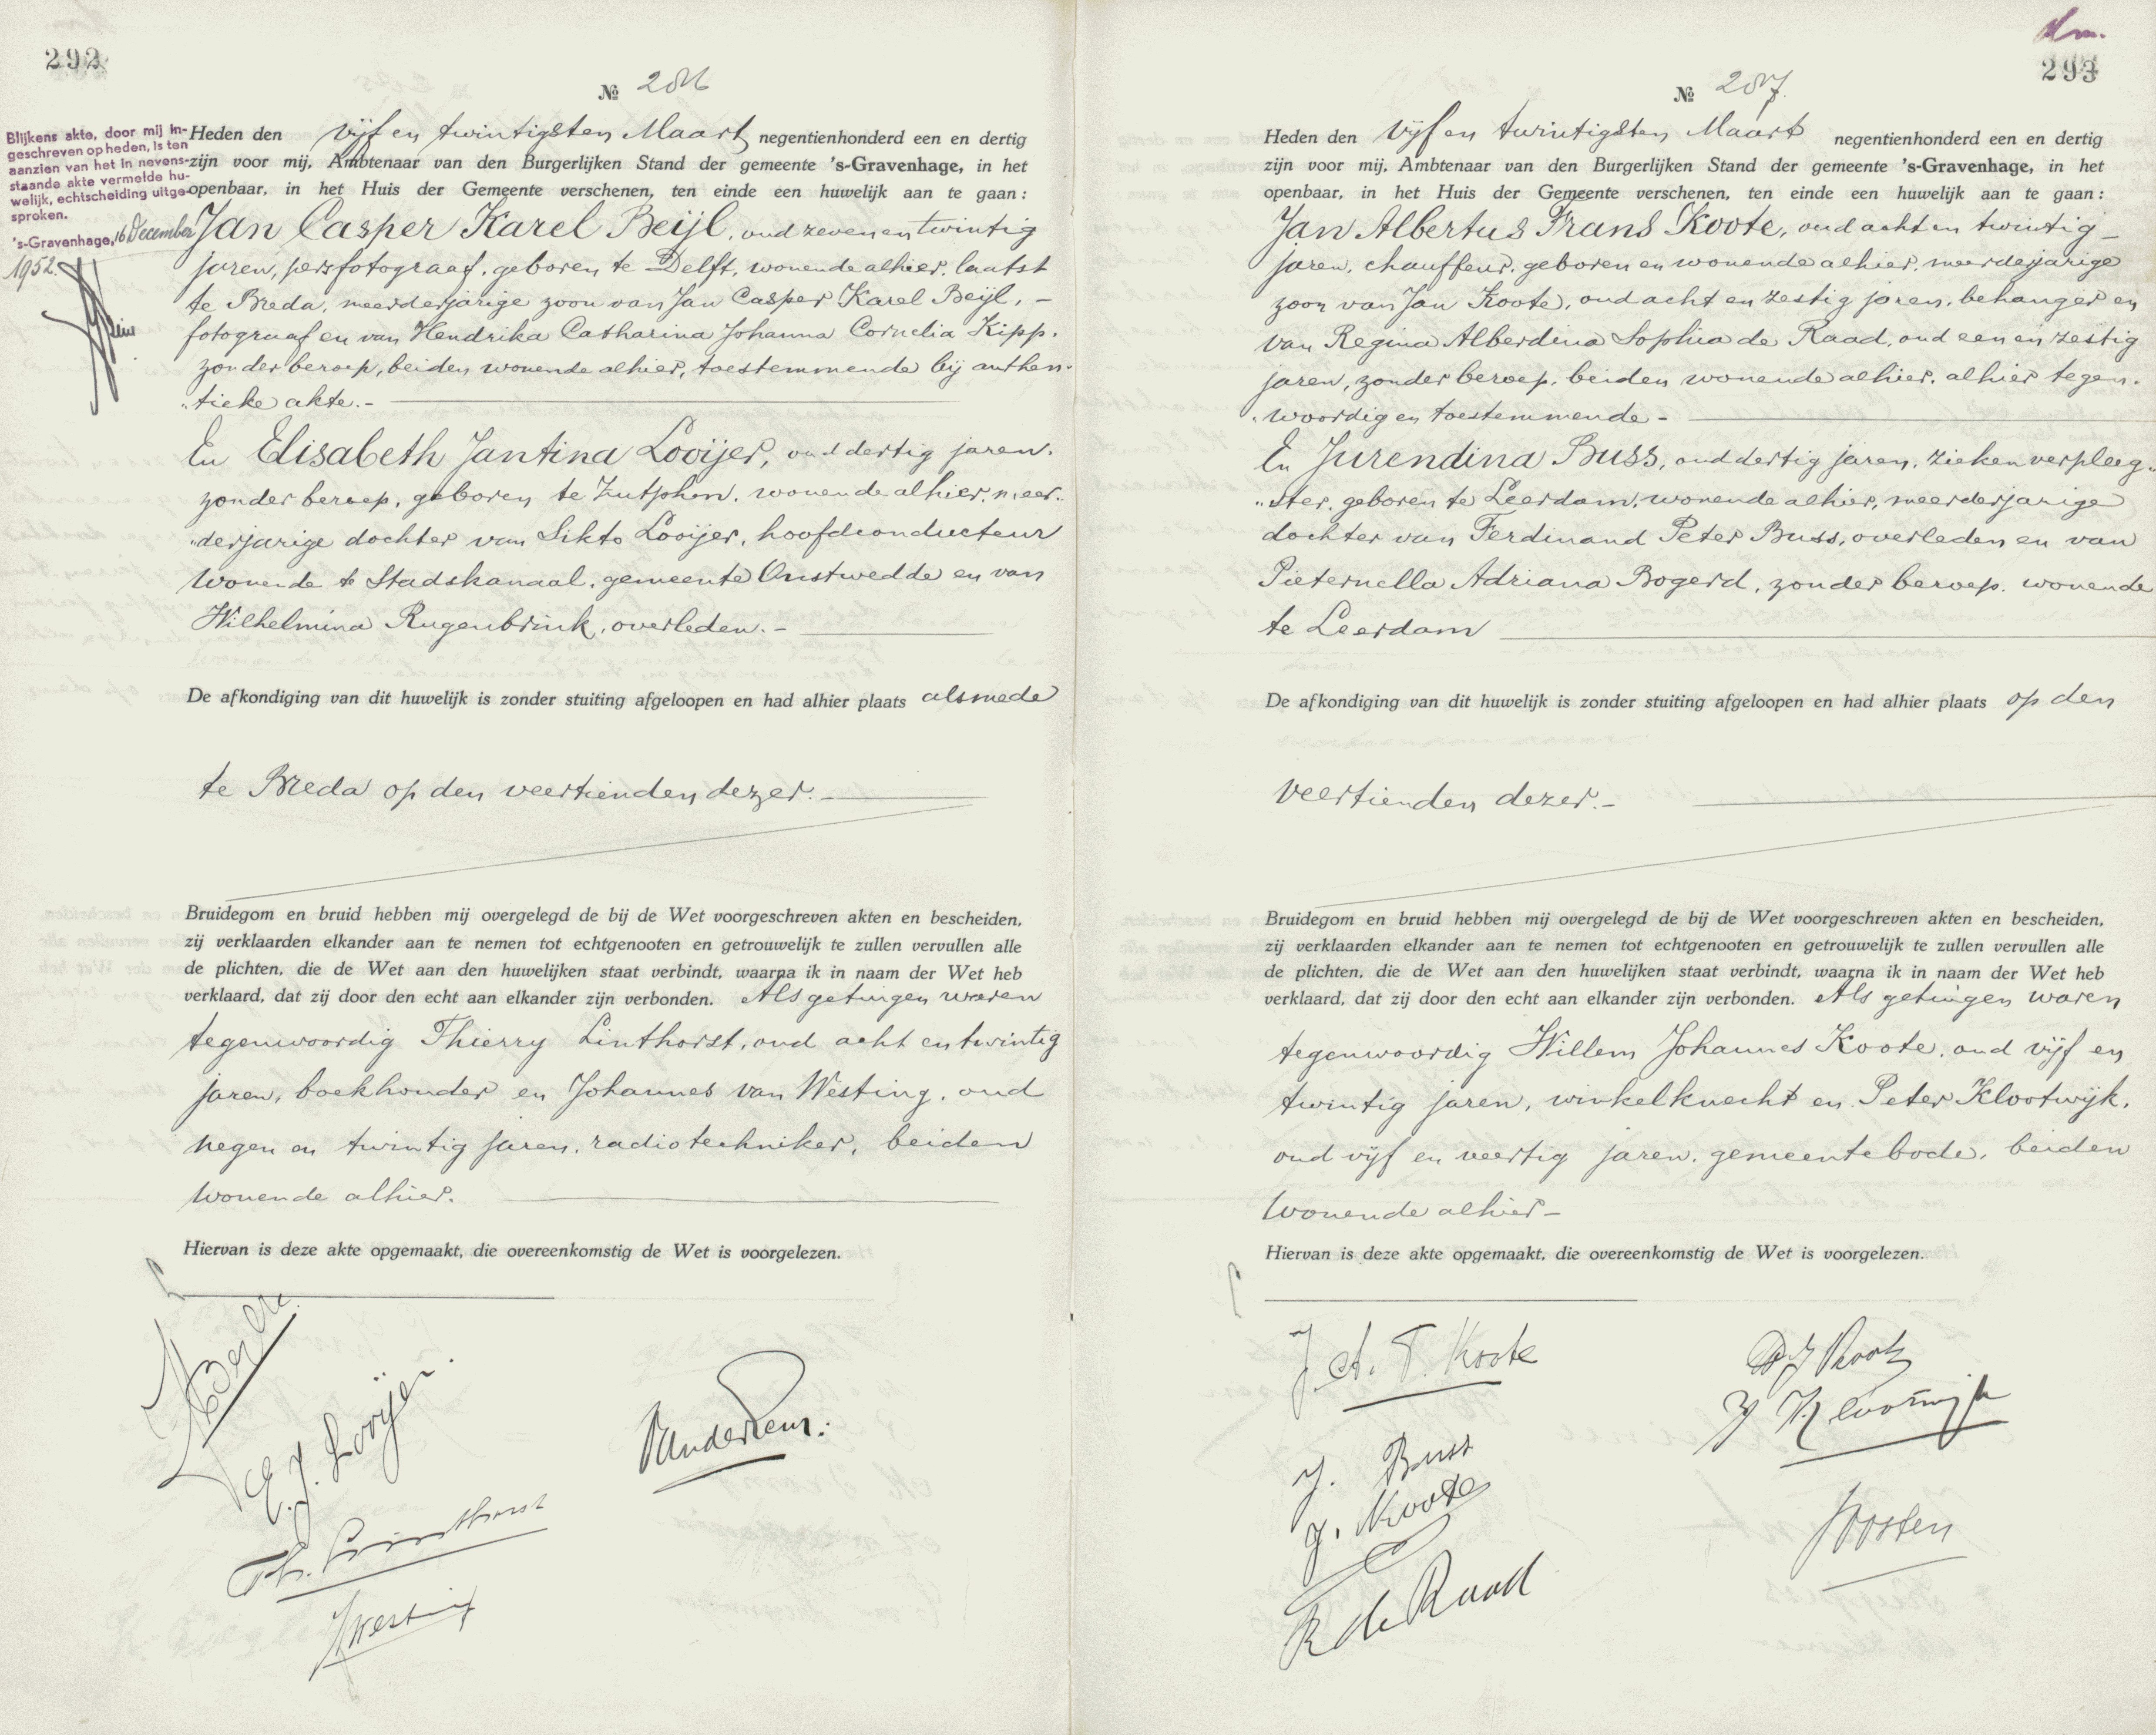 292
№ 286
Blijkens akte, door mij in-
geschreven op heden, is ten
aanzien van het in nevens-
staande akte vermelde hu-
welijk, echtscheiding uitge-
sproken.
's-Gravenhage, 16 December
1952.
Heden den vijf en twintigsten Maart negentienhonderd een en dertig
zijn voor mij, Ambtenaar van den Burgerlijken Stand der gemeente 's-Gravenhage, in het
openbaar, in het Huis der Gemeente verschenen, ten einde een huwelijk aan te gaan:
Jan Casper Karel Beijl, oud zeven en twintig
jaren, persfotograaf, geboren te Delft, wonende alhier, laatst
te Breda, meerderjarige zoon van Jan Casper Karel Beijl, -
fotograaf en van Hendrika Catharina Johanna Cornelia Kipp,
zonder beroep, beiden wonende alhier, toestemmende bij authen-
"tieke akte.-
En Elisabeth Jantina Looijer, oud dertig jaren,
zonder beroep, geboren te Zutphen, wonende alhier, meer-
"derjarige dochter van Sikto Looijer, hoofdconducteur
wonende te Stadskanaal, gemeente Onstwedde en van
Wilhelmina Rugenbrink, overleden.-
De afkondiging van dit huwelijk is zonder stuiting afgeloopen en had alhier plaats alsmede
te Breda op den veertienden dezer.-
Bruidegom en bruid hebben mij overgelegd de bij de Wet voorgeschreven akten en bescheiden,
zij verklaarden elkander aan te nemen tot echtgenooten en getrouwelijk te zullen vervullen alle
de plichten, die de Wet aan den huwelijken staat verbindt, waarna ik in naam der Wet heb
verklaard, dat zij door den echt aan elkander zijn verbonden. Als getuigen waren
tegenwoordig Thierry Linthorst, oud acht en twintig
jaren, boekhouder en Johannes van Westing, oud
negen en twintig jaren, radiotechniker, beiden
wonende alhier.
Hiervan is deze akte opgemaakt, die overeenkomstig de Wet is voorgelezen.
E. J. Looijer.
Th. Linthorst
293
№ 287.
Heden den vijf en twintigsten Maart negentienhonderd een en dertig
zijn voor mij, Ambtenaar van den Burgerlijken Stand der gemeente 's-Gravenhage, in het
openbaar, in het Huis der Gemeente verschenen, ten einde een huwelijk aan te gaan:
Jan Albertus Frans Koote, oud acht en twintig-
jaren, chauffeur, geboren en wonende alhier, meerderjarige
zoon van Jan Koote, oud acht en zestig jaren, behanger en
van Regina Alberdina Sophia de Raad, oud een en zestig
jaren, zonder beroep, beiden wonende alhier, alhier tegen-
"woordig en toestemmende -
En Jurendina Buss, oud dertig jaren, ziekenverpleeg-
"ster, geboren te Leerdam, wonende alhier, meerderjarige
dochter van Ferdinand Peter Buss, overleden en van
Pieternella Adriana Bogerd, zonder beroep, wonende
te Leerdam
De afkondiging van dit huwelijk is zonder stuiting afgeloopen en had alhier plaats op den
veertienden dezer.-
Bruidegom en bruid hebben mij overgelegd de bij de Wet voorgeschreven akten en bescheiden,
zij verklaarden elkander aan te nemen tot echtgenooten en getrouwelijk te zullen vervullen alle
de plichten, die de Wet aan den huwelijken staat verbindt, waarna ik in naam der Wet heb
verklaard, dat zij door den echt aan elkander zijn verbonden. Als getuigen waren
tegenwoordig Willem Johannes Koote, oud vijf en
twintig jaren, winkelknecht en Peter Klootwijk,
oud vijf en veertig jaren, gemeentebode, beiden
wonende alhier-
Hiervan is deze akte opgemaakt, die overeenkomstig de Wet is voorgelezen.
J. A. F. Koote
J. Buss
J. Koote
R de Raad
Joosten